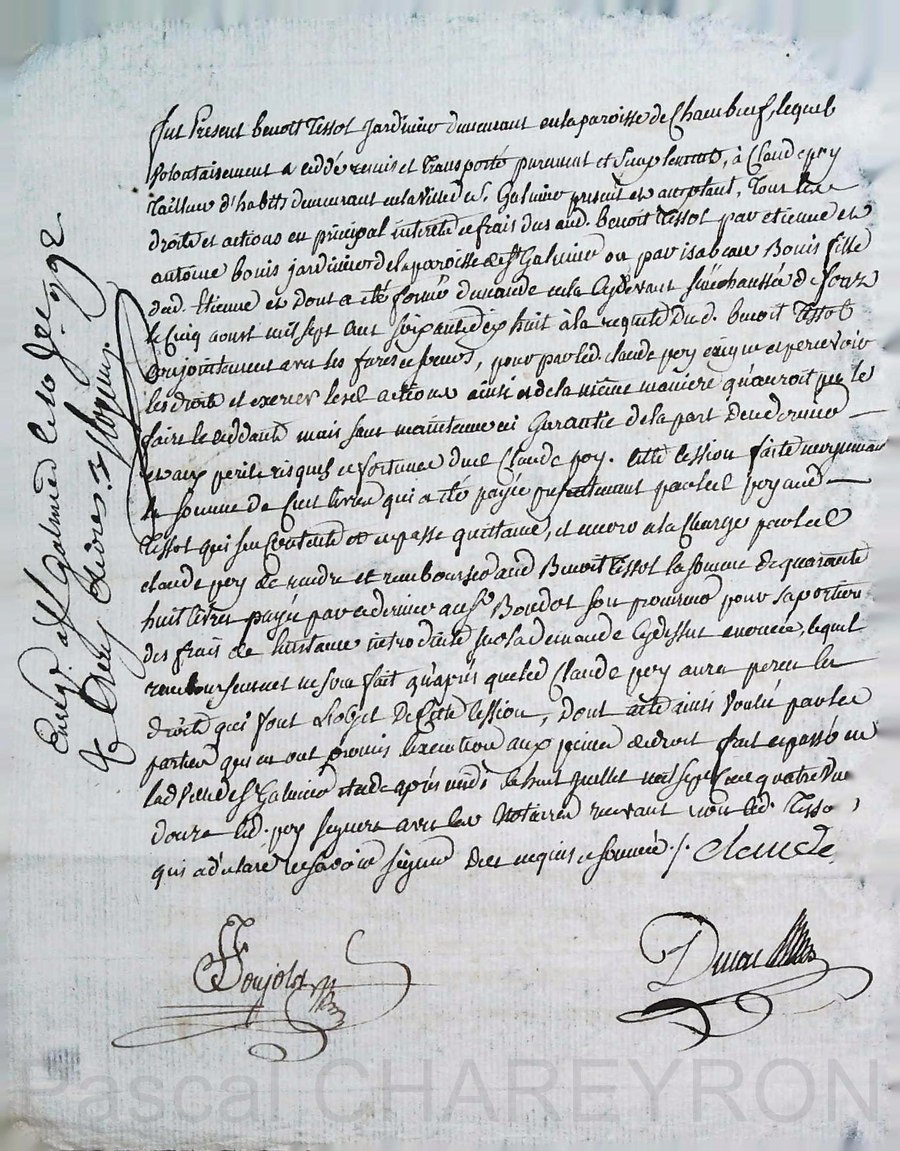 fut Present benoit Tessot jardinier demeurant en la paroisse de Chambœuf, lequel
volontairement a ceddé remis et transporté purement et simplement, à Claude pey
Tailleur d'habits demeurant en la ville de St Galmier present et acceptant, Tous les
droits et actions en principal interets et frais dus aud. benoit Tessot par etienne et
antoine bouis jardiniers de la paroisse de St Galmier ou par isabeau Bouis fille
dud. Etienne et dont a été formé demande en la cydevant sénéchaussée de forez
le cinq aoust mil sept cent soixante dix huit à la requete dud. benoit Tessot
conjointement avec ses freres et sœurs, pour par led. claude pey exiger et percevoir
les droits et exercer lesd actions ainsi et de la même maniere qu'auroit pu le
faire le ceddant mais sans maintenue ni Garantie de la part de ce dernier
et aux perils risques et fortunes dud Claude pey. cette cession faite moyennant
la somme de cent livres qui a été payée presentement par led pey aud
Tessot qui s'en contente et en passe quittance, et encore à la charge par led
claude pey de rendre et rembourser aud Benoit Tessot la somme de quarante
huit livres payée par ce dernier au sr Boudot son procureur pour sa portion
des frais de l'instance introduite sur la demande cydessus enoncée, lequel
remboursement ne sera fait qu'après que led Claude pey aura perçu les
droits qui font l'objet de cette cession, dont acte ainsi voulu par les
parties qui en ont promis l'execution aux peines de droit fait et passé en
lad ville de St Galmier étude après midi le huit juillet mil sept cent quatre vingt
douze led. pey signera avec les Notaires recevant non led. Tessot
qui a déclaré ne savoir signer de ce requis et sommé ./. claude
Enregt. à St Galmier le 10 Jet. 1792
Reçu livres
Pascal CHAREYRON